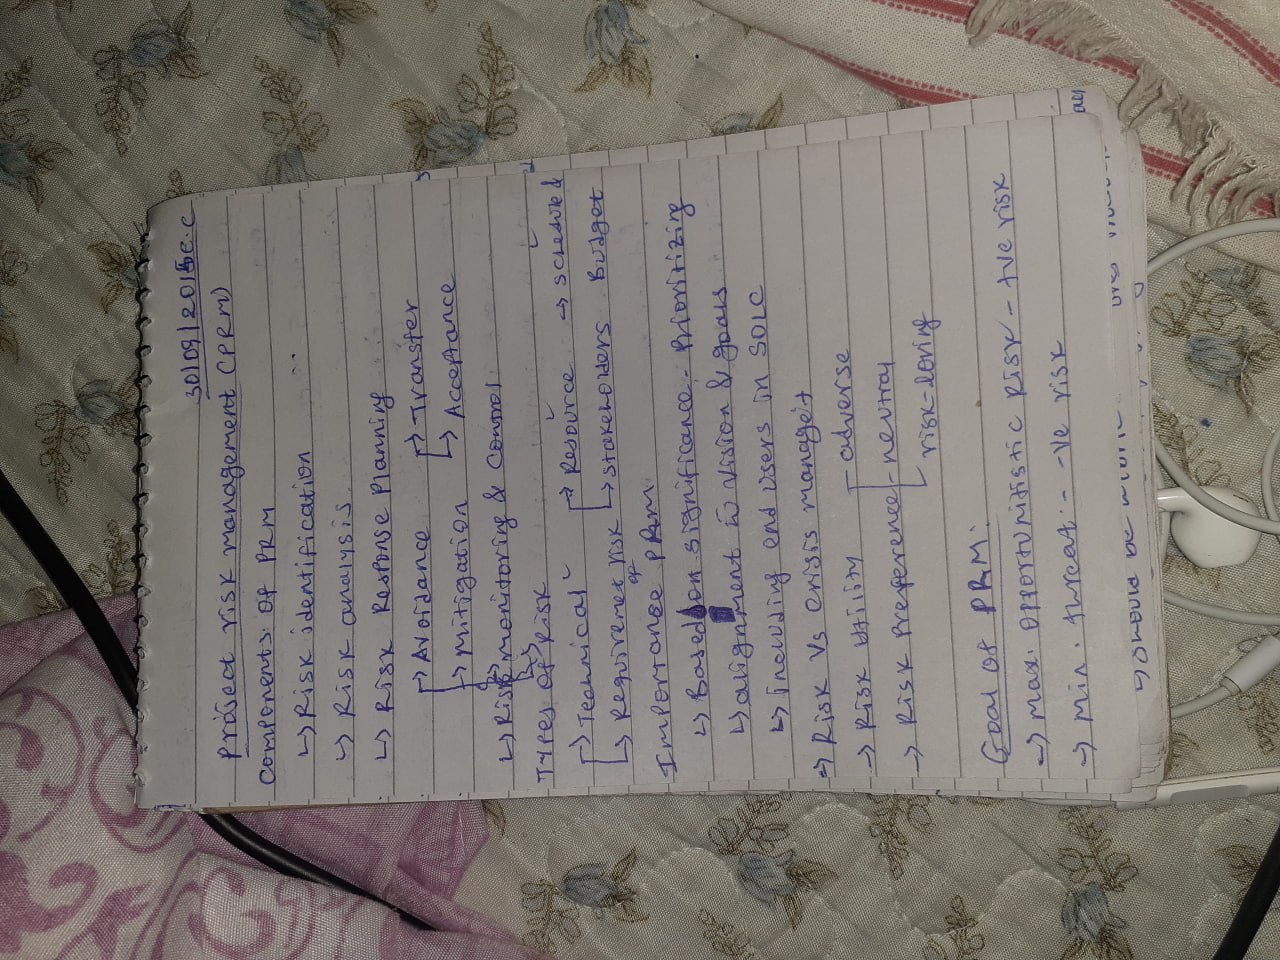 30/09/2015 E.C
Project risk management (PRM)
Components of PRM
↳ Risk identification
↳ Risk analysis
↳ Risk Response Planning
→ Avoidance → Transfer
→ Mitigation → Acceptance
↳ Risk monitoring & Control
Types of Risk
→ Technical → Resource → schedule
→ Requirement risk → stakeholders Budget
Importance of PRM
↳ Based on significance - Prioritizing
↳ alignment to vision & goals
↳ including end users in SDLC
→ Risk Vs crisis manage't
→ Risk utility - adverse
→ Risk Preference - neutral
risk-loving
Goal of PRM:
→ max. opportunistic Risk - +ve risk
→ min. threat - -ve risk
→ should be